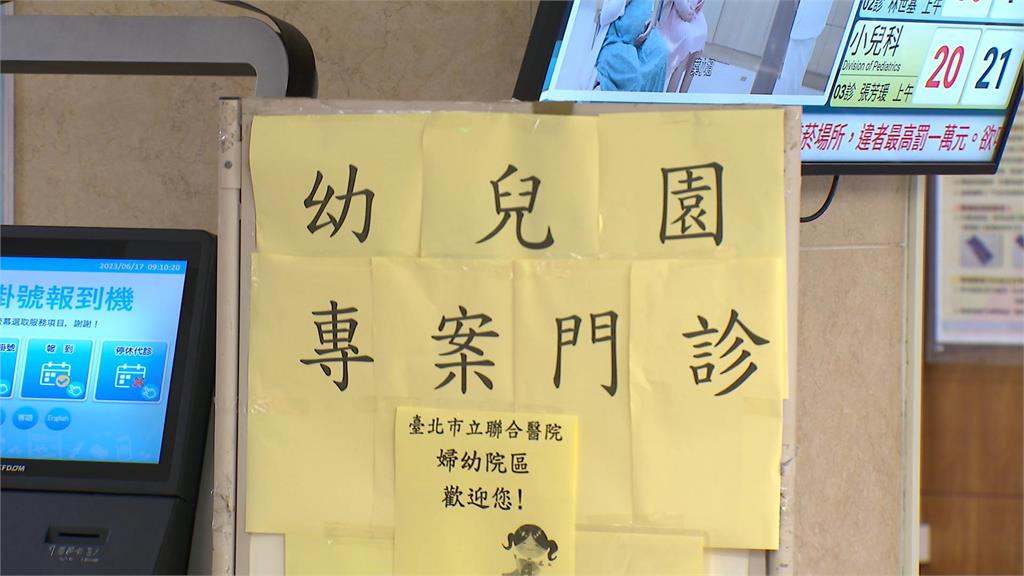 幼兒園
專案門診
臺北市立聯合醫院
婦幼院區
歡迎您!
2023/06/17 09:10:20
掛號報到機
幕選取服務項目, 謝謝!
報到
停休代診
客語
English
02診 林世基 上午
小兒科
Division of Pediatrics
20
21
03診 張芳瑗 上午
菸場所，違者最高罰一萬元。欲